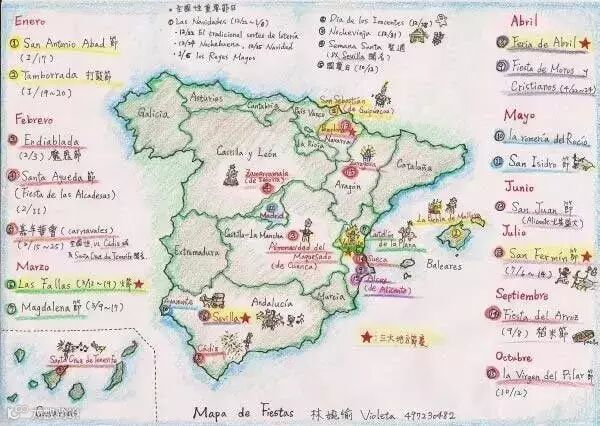 Enero
① San Antonio Abad 節
(1/17)
② Tamborrada 打鼓節
(1/19~20)
Febrero
③ Endiablada
(2/3) 魔鬼節
④ Santa Agueda 節
(Fiesta de las Alcadesas)
2/11
嘉年華會 (carnavales)
(2/15~25)
Marzo
Las Fallas (3/12~19)
Magdalena 節 (3/9~19)
全國性重要節日
Las Navidades (12/22~1/6)
12/22 El tradicional sorteo de lotería
12/24 Nochebuena, 12/25 Navidad
1/5 los Reyes Magos
Día de los Inocentes (12/28)
Nochevieja (12/31)
Semana Santa 聖週
(以 Sevilla 聞名)
國慶日 (10/12)
Abril
Feria de Abril ★
Fiesta de Moros y
Cristianos (4/22~24)
Mayo
la romería del Rocío
San Isidro 節
Junio
San Juan 節
Julio
San Fermín 節
(7/6~14)
Septiembre
Fiesta del Arroz
(9/8) 稻米節
Octubre
la Virgen del Pilar 節
(10/12)
Galicia
Asturias
Cantabria
País Vasco
San Sebastián
de Guipuzcoa
Navarra
la Rioja
Castilla y León
Aragón
Cataluña
Zaragoza
Madrid
Castilla-La Mancha
Almonacid del
Marquesado
(de Cuenca)
Castellón
de la Plana
Sueca
Alcoy
(de Alicante)
Baleares
Extremadura
Andalucía
Murcia
Sevilla
Cádiz
Santa Cruz de Tenerife
Canarias
★:三大地方節慶
Mapa de Fiestas 林婉愉 Violeta 497230482